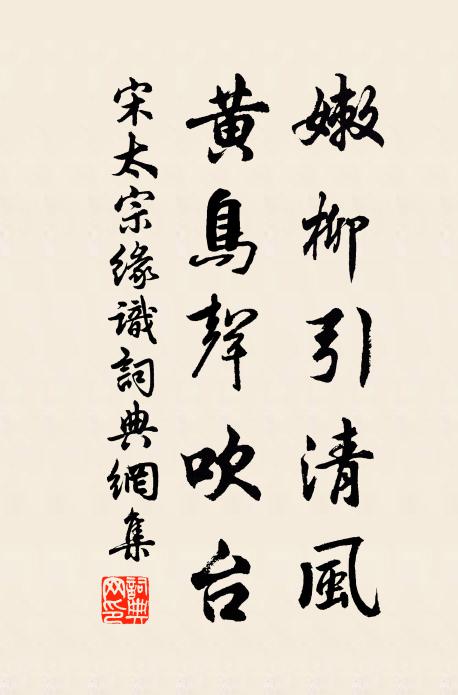 嫩柳引清風
黃鳥聲吹台
宋太宗緣識詞典網集
詞典网印